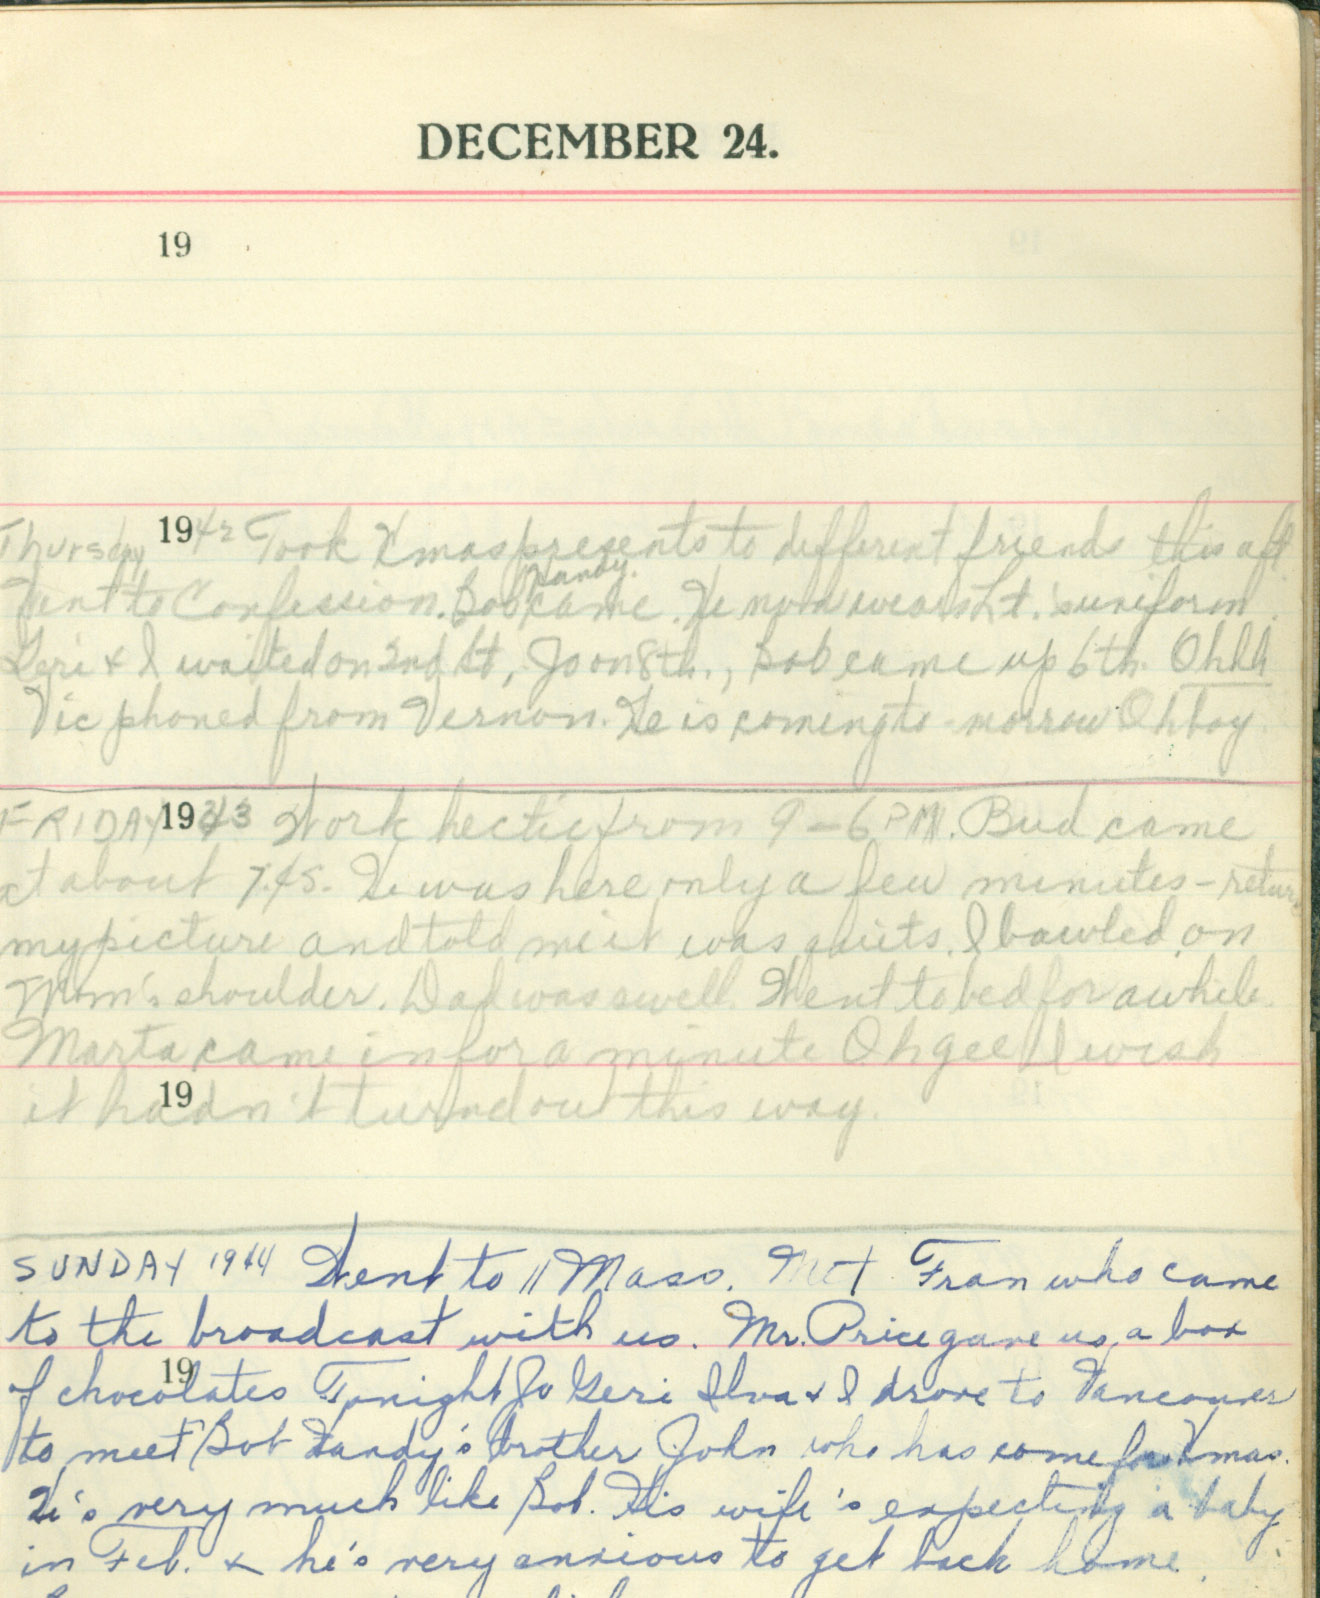 DECEMBER 24.
19
Thursday 1942 Took Xmas presents to different friends this aft
Went to Confession. Bob Handy came. He now wears Lt.'s uniform.
Geri & I waited on 2nd St, Jo on 8th., Bob came up 6th. Ohhh
Vic phoned from Vernon. He is coming to-morrow Oh boy
FRIDAY 1943 Work hectic from 9-6 PM. Bud came
at about 7.45. He was here only a few minutes - return
my picture and told me it was quits. I bawled on
Mom's shoulder. Dad was swell. Went to bed for awhile.
Marta came in for a minute Oh gee I wish
19
it hadn't turned out this way.
SUNDAY 1944 Went to 11 Mass. Met Fran who came
to the broadcast with us. Mr. Price gave us a box
19
of chocolates Tonight Jo Geri Ilva & I drove to Vancouver
to meet Bob Handy's brother John who has come for Xmas.
He's very much like Bob. His wife's expecting a baby
in Feb. & he's very anxious to get back home.